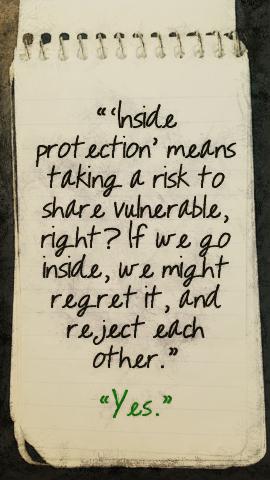 “‘Inside
protection’ means
taking a risk to
share vulnerable,
right? If we go
inside, we might
regret it, and
reject each
other.”
“Yes.”